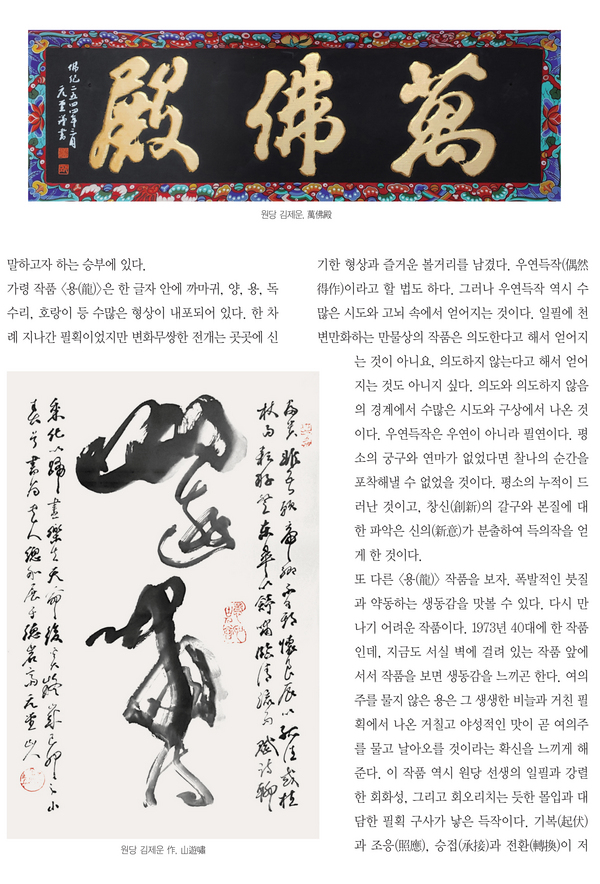 萬佛殿
佛紀二五四四年三月
元堂謹書
원당 김제운, 萬佛殿
말하고자 하는 승부에 있다.
가령 작품 〈용(龍)〉은 한 글자 안에 까마귀, 양, 용, 독
수리, 호랑이 등 수많은 형상이 내포되어 있다. 한 차
례 지나간 필획이었지만 변화무쌍한 전개는 곳곳에 신
기한 형상과 즐거운 볼거리를 남겼다. 우연득작(偶然
得作)이라고 할 법도 하다. 그러나 우연득작 역시 수
많은 시도와 고뇌 속에서 얻어지는 것이다. 일필에 천
변만화하는 만물상의 작품은 의도한다고 해서 얻어지
는 것이 아니요, 의도하지 않는다고 해서 얻어
지는 것도 아니지 싶다. 의도와 의도하지 않음
의 경계에서 수많은 시도와 구상에서 나온 것
이다. 우연득작은 우연이 아니라 필연이다. 평
소의 궁구와 연마가 없었다면 찰나의 순간을
포착해낼 수 없었을 것이다. 평소의 누적이 드
러난 것이고, 창신(創新)의 갈구와 본질에 대
한 파악은 신의(新意)가 분출하여 득의작을 얻
게 한 것이다.
또 다른 〈용(龍)〉 작품을 보자. 폭발적인 붓질
과 약동하는 생동감을 맛볼 수 있다. 다시 만
나기 어려운 작품이다. 1973년 40대에 한 작품
인데, 지금도 서실 벽에 걸려 있는 작품 앞에
서서 작품을 보면 생동감을 느끼곤 한다. 여의
주를 물지 않은 용은 그 생생한 비늘과 거친 필
획에서 나온 거칠고 야성적인 맛이 곧 여의주
를 물고 날아오를 것이라는 확신을 느끼게 해
준다. 이 작품 역시 원당 선생의 일필과 강렬
한 회화성, 그리고 회오리치는 듯한 몰입과 대
담한 필획 구사가 낳은 득작이다. 기복(起伏)
과 조응(照應), 승접(承接)과 전환(轉換)이 저
富貴非吾願帝鄉不可期懷良辰以孤往或植
杖而耘耔登東皋以舒嘯臨清流而賦詩聊
山遊嘯
乘化以歸盡樂夫天命復奚疑
원당 김제운 作. 山遊嘯